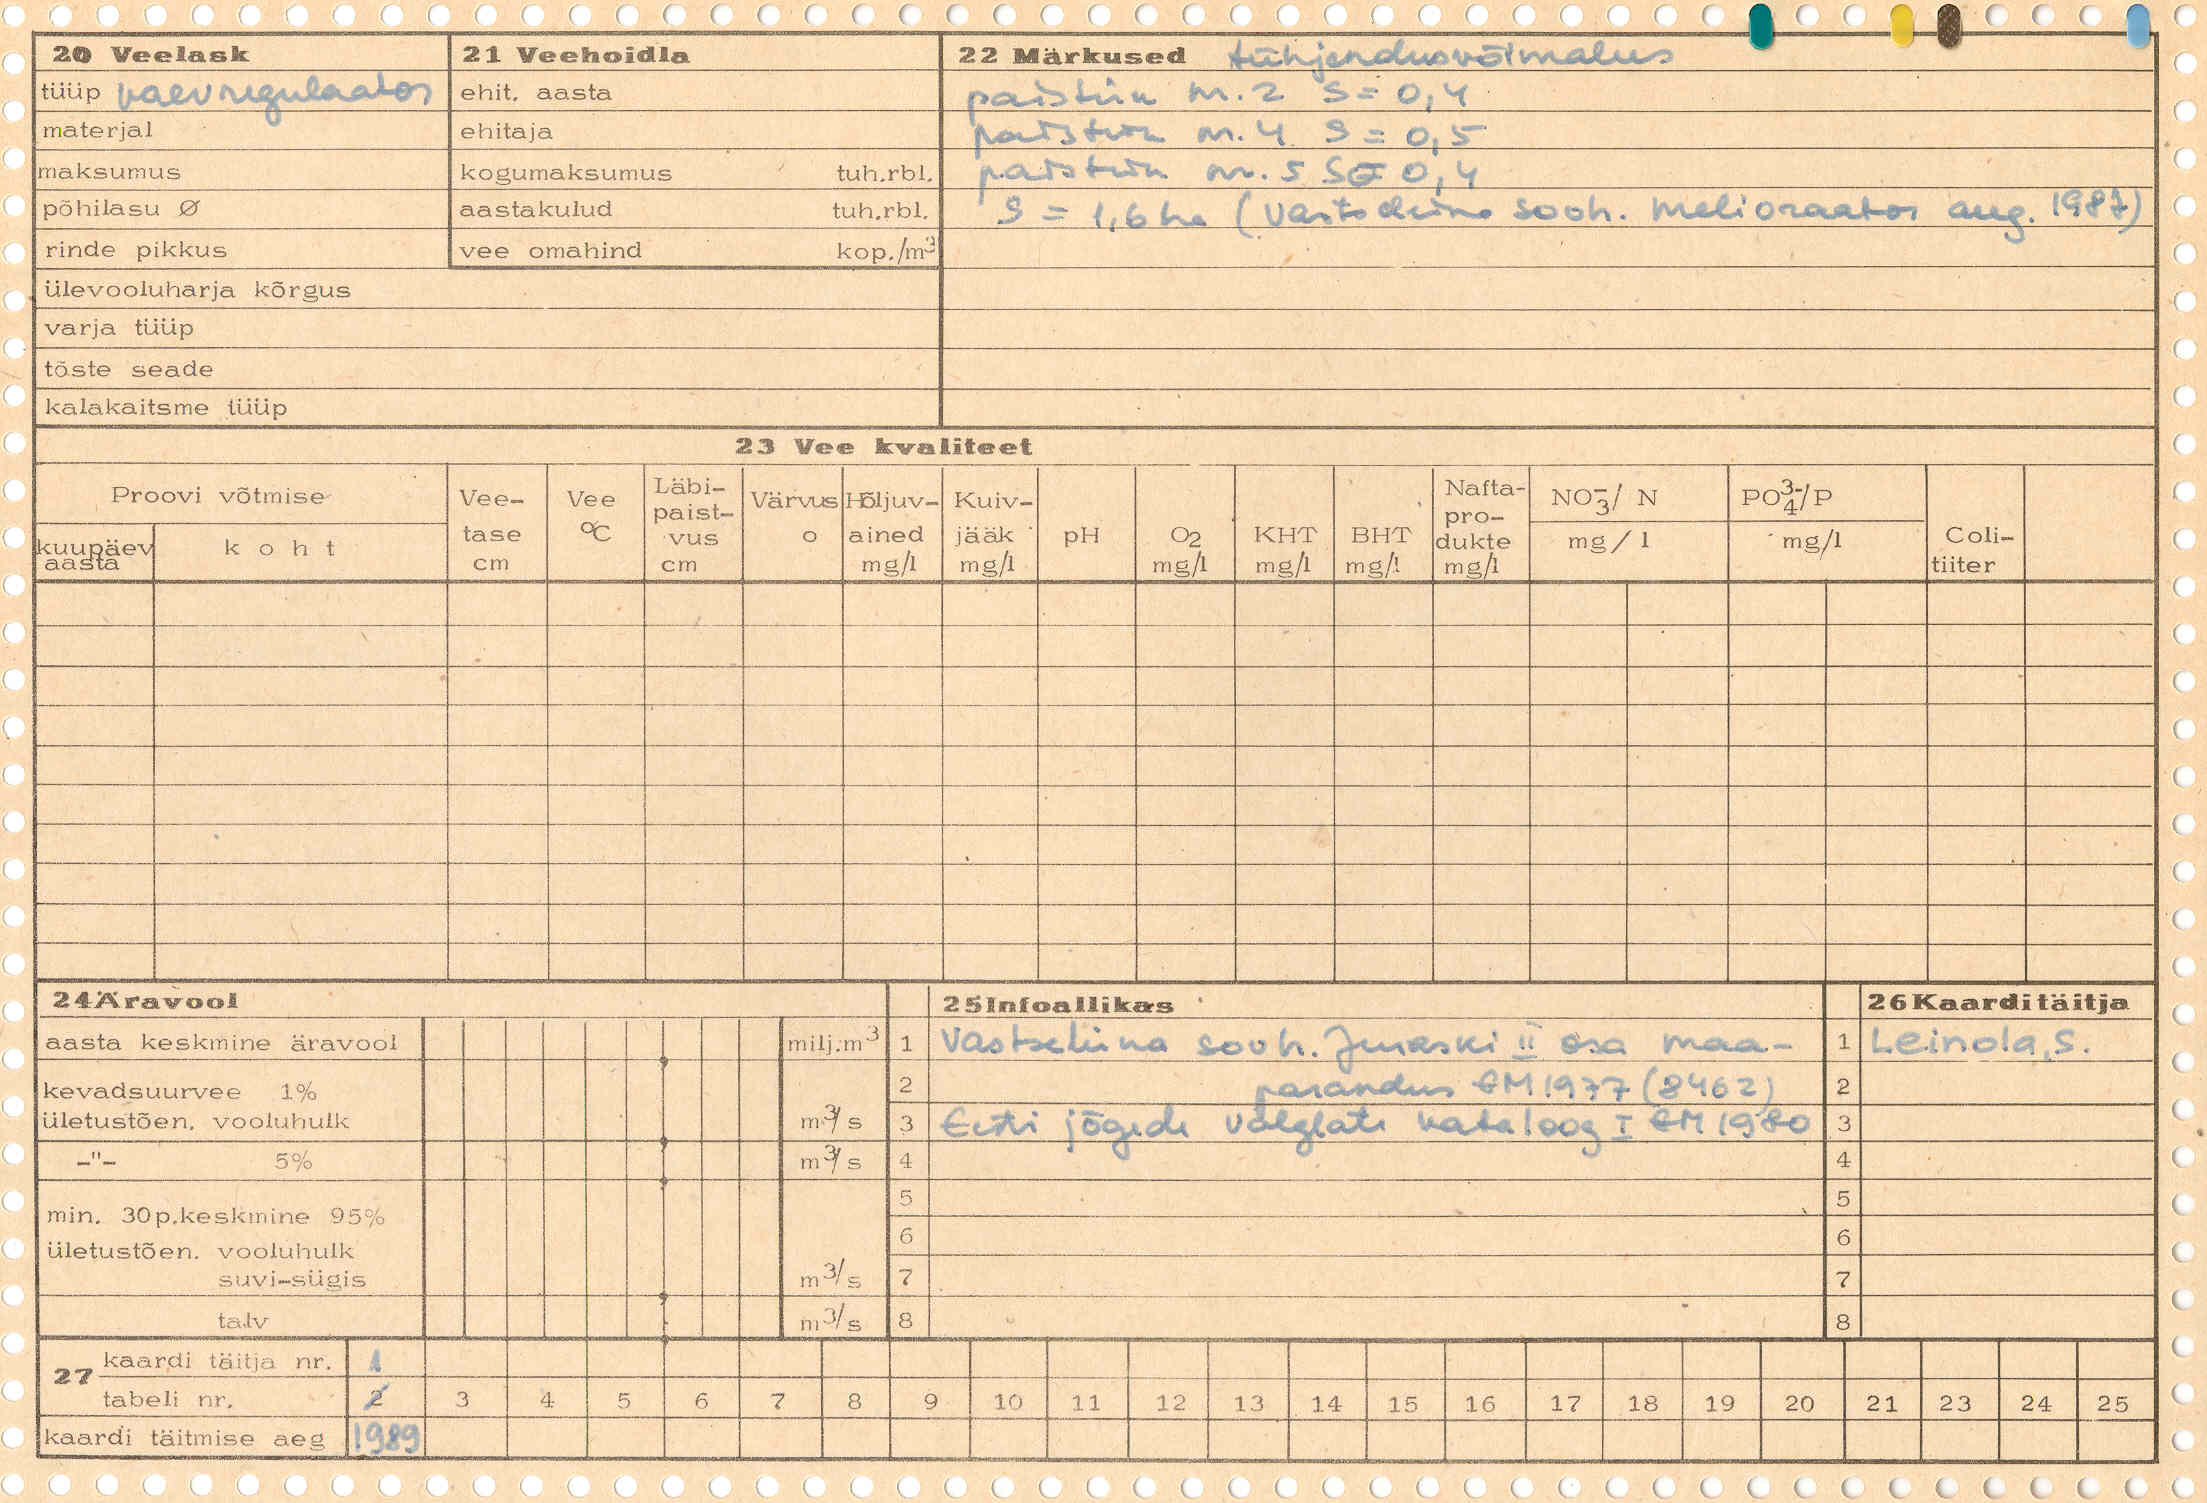 20 Veelask
tüüp kaevregulaator
materjal
maksumus
põhilasu Ø
rinde pikkus
ülevooluharja kõrgus
varja tüüp
tõste seade
kalakaitsme tüüp
21 Veehoidla
ehit. aasta
ehitaja
kogumaksumus tuh.rbl.
aastakulud tuh.rbl.
vee omahind kop./m³
22 Märkused tühjendusvõimalus
paistiik nr. 2 S = 0,4
paistiik nr. 4 S = 0,5
paistiik nr. 5 S = 0,4
S = 1,6 ha (Vastseliina sooh. melioraator aug. 1987)
23 Vee kvaliteet
Proovi võtmise
kuupäev aasta
koht
Vee-tase cm
Vee °C
Läbi-paist-vus cm
Värvus o
Hõljuv-ained mg/l
Kuiv-jääk mg/l
pH
O2 mg/l
KHT mg/l
BHT mg/l
Nafta-pro-dukte mg/l
NO3-/ N mg/l
PO4 3-/P mg/l
Coli-tiiter
24 Äravool
aasta keskmine äravool milj.m³
kevadsuurvee 1%
ületustõen. vooluhulk m³/s
-"- 5% m³/s
min. 30p.keskmine 95%
ületustõen. vooluhulk
suvi-sügis m³/s
talv m³/s
25 Infoallikas
1 Vastseliina sovh. Juraski II osa maa-
2 parandus EM 1977 (8462)
3 Eesti jõgede valglate kataloog I EM 1980
4
5
6
7
8
26 Kaarditäitja
1 Leinola, S.
2
3
4
5
6
7
8
27 kaardi täitja nr. 1
tabeli nr. 2 3 4 5 6 7 8 9 10 11 12 13 14 15 16 17 18 19 20 21 23 24 25
kaardi täitmise aeg 1989